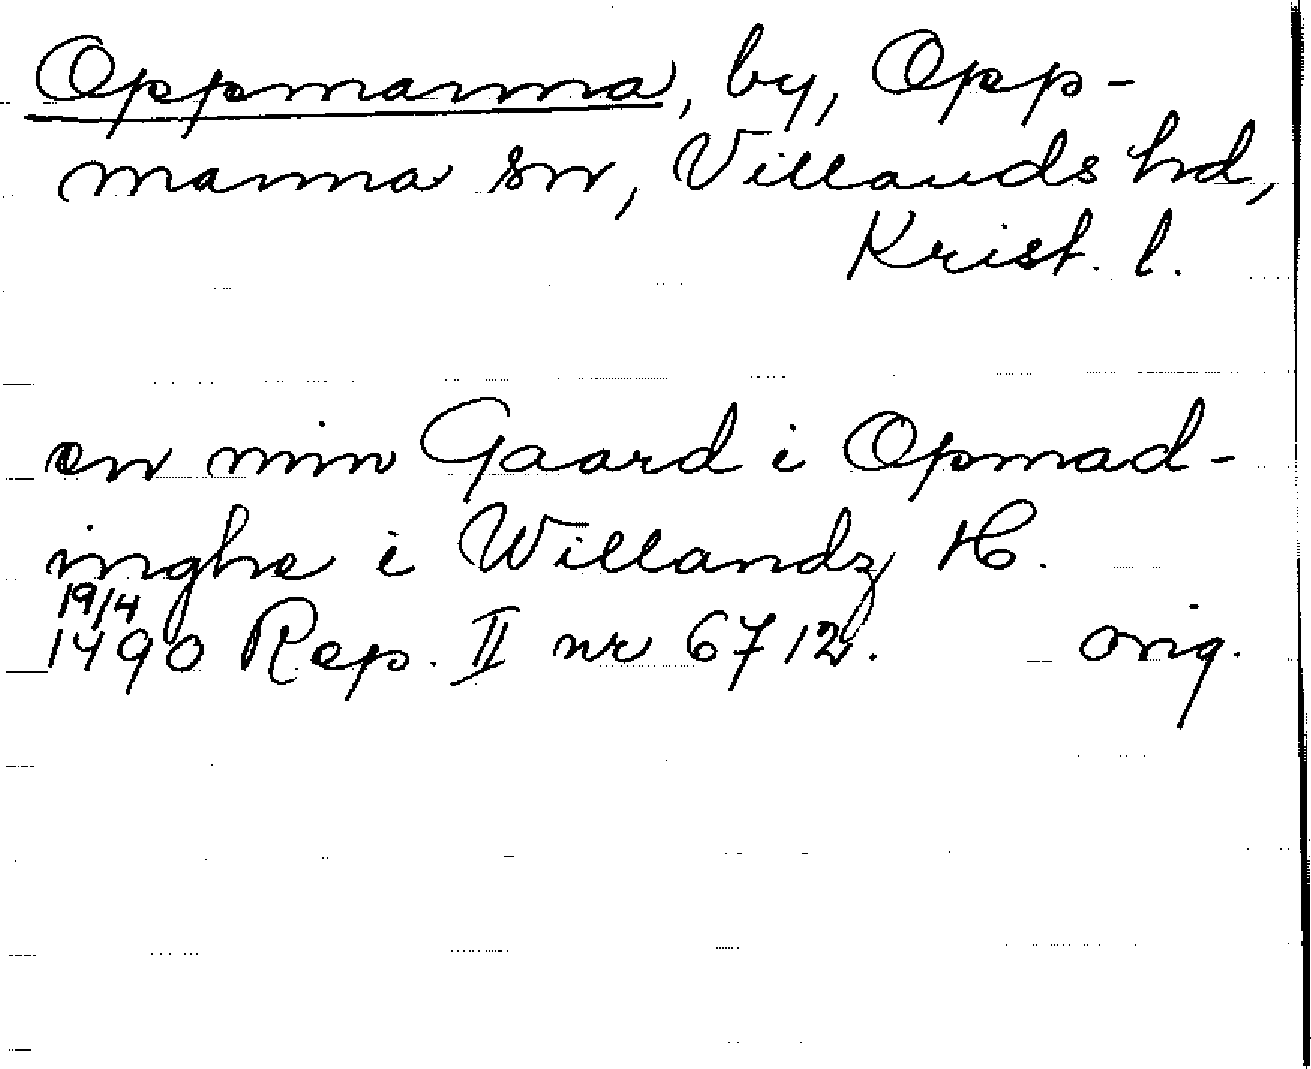 Oppmanna, by, Opp-
manna sn, Villands hd,
Krist. l.
en min Gaard i Opmad-
inghe i Willandz H.
19/4
1490 Rep. II nr 6712. orig.